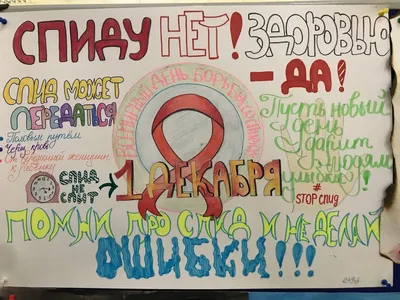 СПИДУ НЕТ! ЗДОРОВЬЮ
- ДА!
СПИД МОЖЕТ
ПЕРЕДАТЬСЯ
Половым путём
Через кровь
От беременной женщины
к ребёнку
СПИД
НЕ
СПИТ
ДЕНЬ БОРЬБЫ
1 ДЕКАБРЯ
Пусть новый
день
дарит
людям
улыбку!
#
STOP СПИД
ПОМНИ ПРО СПИД И НЕ ДЕЛАЙ
ОШИБКИ!!!